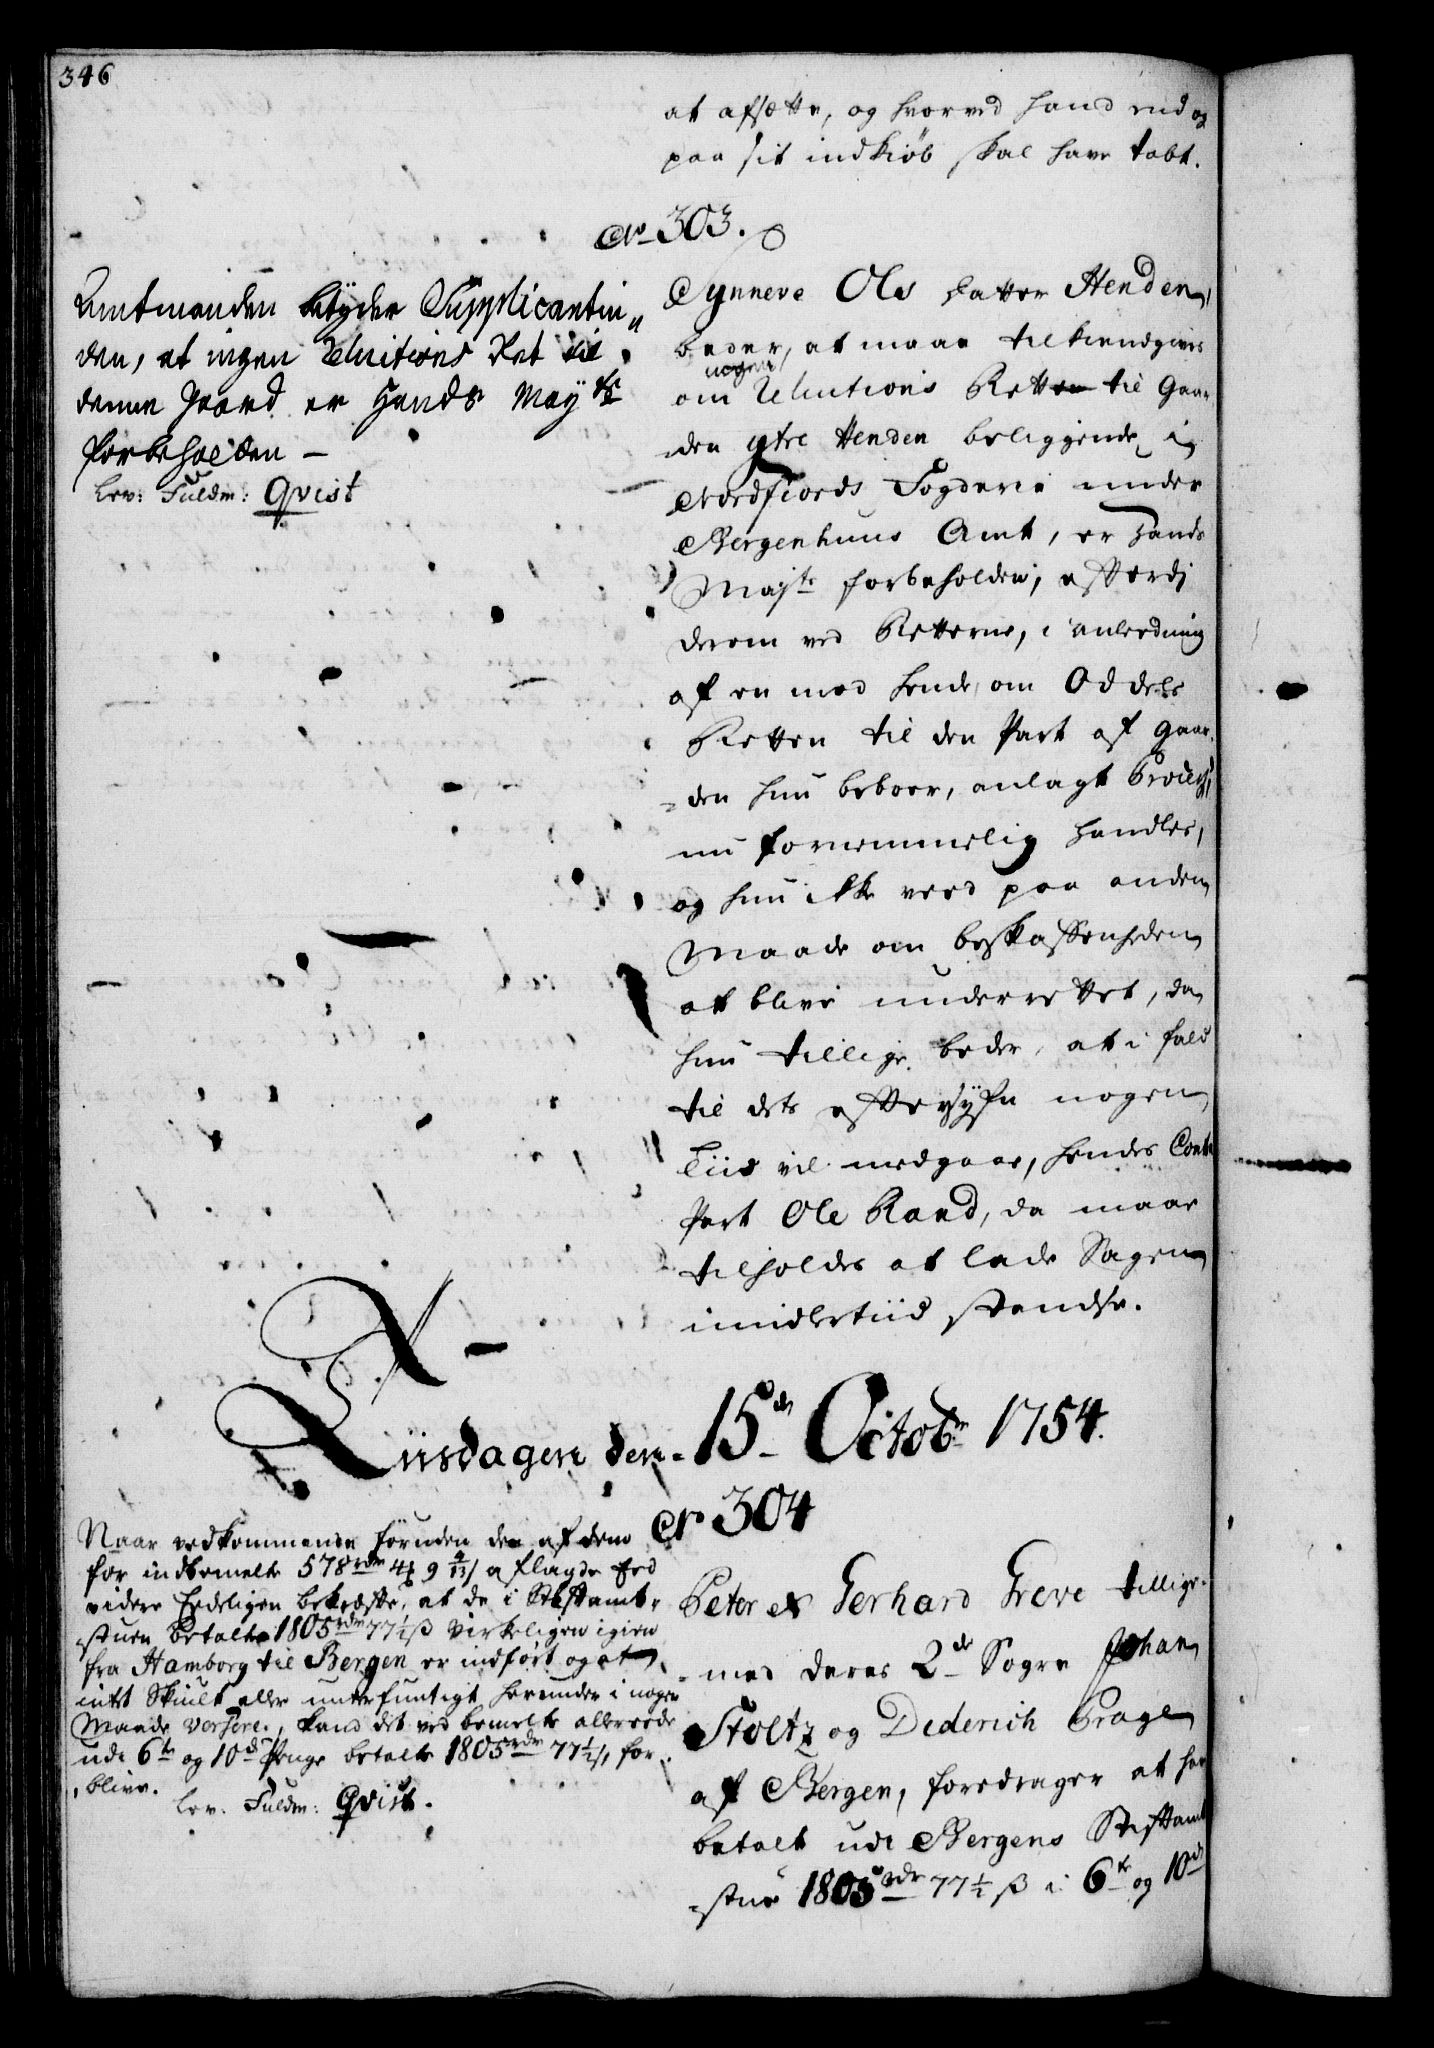 346
at afsætte, og hvorved hand end og
paa sit indkiøb skal have tabt.
No 303.
Amtmanden betyder Supplicantin„
den, at ingen Reluitions Ret til
denne Gaard er Hands Mayts
forbeholden –
Lev: Fuldm: Qvist
Synneve Ols Datter Henden,
beder, at maae tilkiendgives
om nogen Reluitions Retten til Gaar
den ytre Henden beliggende i
Nordfiords Fogderie under
Bergenhuus Amt, er Hands
Majts forbeholden, efterdj
derom ved Retterne, i anledning
af en mod hende, om Oddels
Retten til den Part af Gaar-
=den huu beboer, anlagt Process,
nu fornemmelig handles,
og huu ikke veed paa anden
Maade om beskaffenheden
at blive underrettet, da
huu tillige beder, at i fald
til dets eftersyfn nogen
Tiid vil medgaae, hendes Contra
Part Ole Rand, da maae
tilholdes at lade Sagen
imidlertiid stendse.
Tiisdagen den 15de Octobr 1754.
No 304
Naar vedkommende foruden den af dem
for indbemelte 578 rdr 4 ß 9 4/13 aflagde Eed
videre Eedeligen bekræfte, at de i Stiftamt-
stuen betalte 1805 rdr 77½ ß virkeligen igien
fra Hamborg til Bergen er indført og at
intet Skiult eller underfuntigt herunder i nogen
Maade versere, kand det ved bemelte allerede
udi 6te og 10de Penge betalte 1805 rdr 77½ ß for-
blive.
Lev: Fuldm: Qvist.
Peter et Gerhard Greve tillige-
=med deres 2de Sogre Johan
Stoltz og Diderich Prage
af Bergen, foredrager at have
betalt udi Bergens Stiftamt
=stue 1805 rdr 77½ ß i 6te og 10de